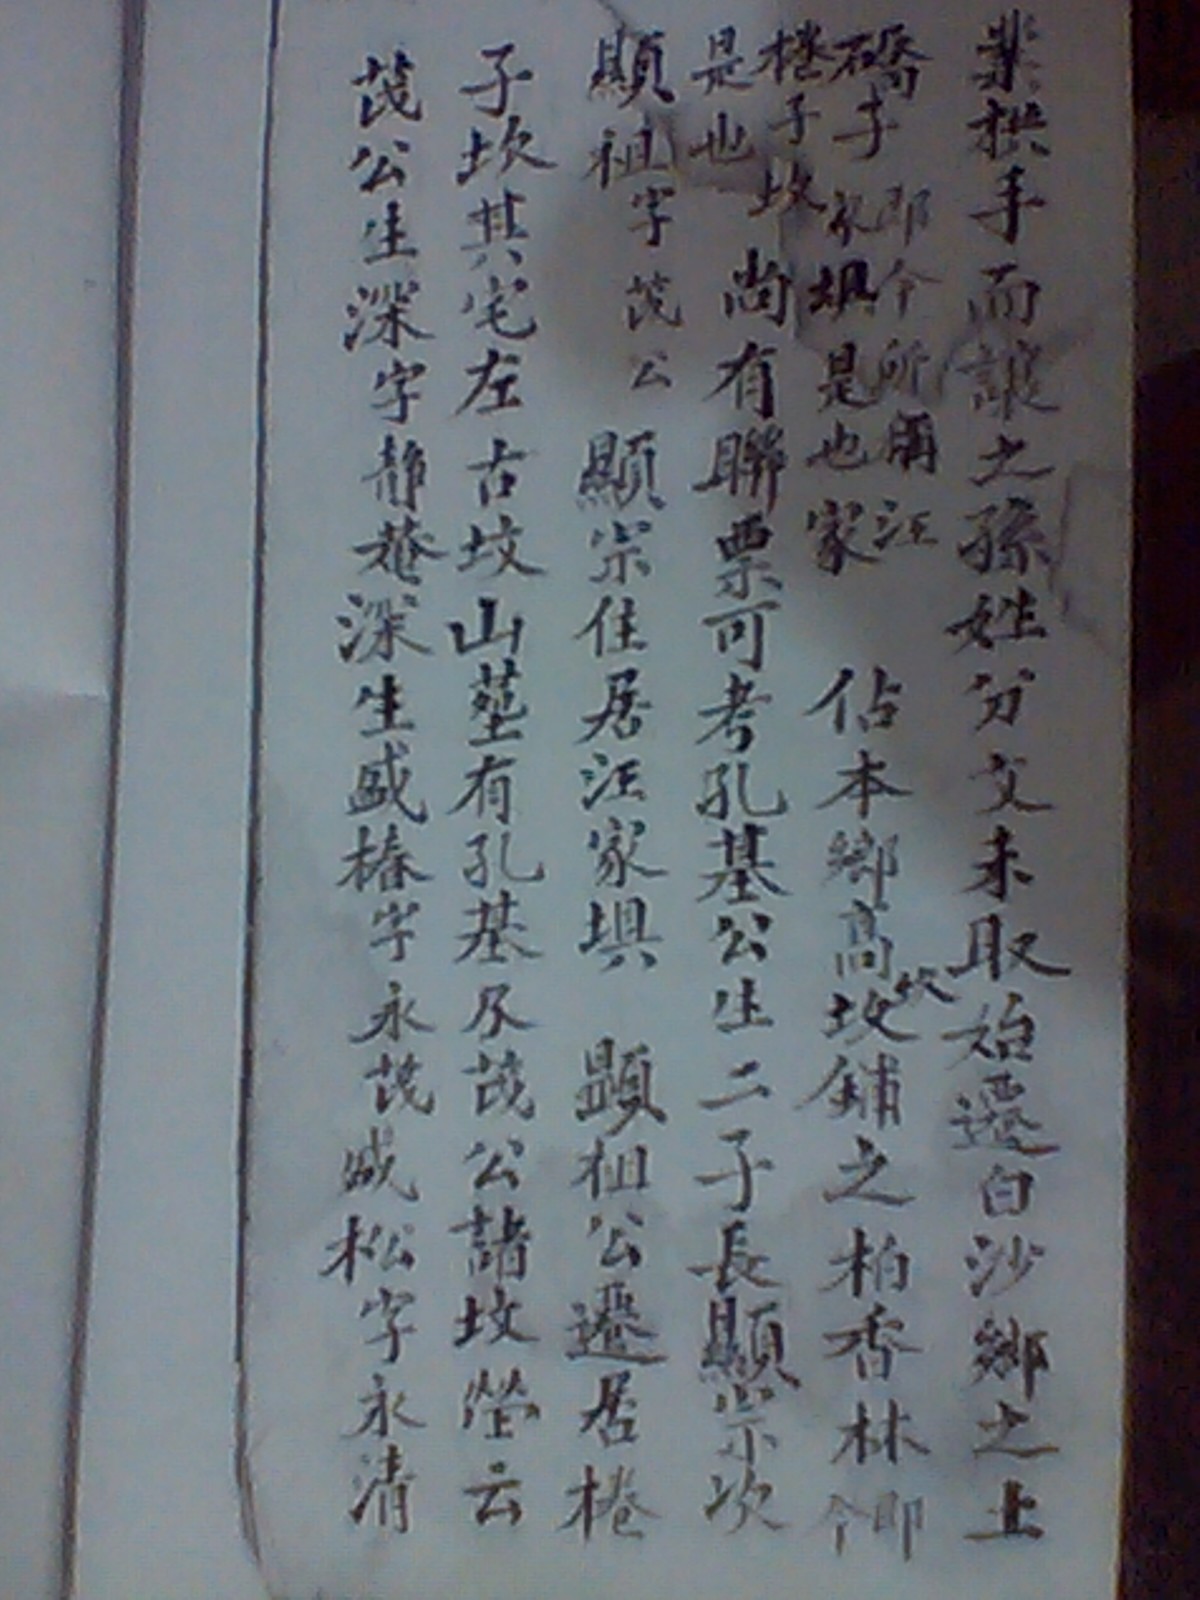 業拱手而讓之孫姓分文未取始遷白沙鄉之土
硚子即今所稱汪家垻是也家佔本鄉高坎坟鋪之柏香林即今
棬子坟是也尚有聯票可考孔基公生二子長顯宗次
顯祖字茂公 顯宗住居汪家垻 顯祖公遷居棬
子坎其宅左古坟山塋有孔基及茂公諸坟瑩云
茂公生深字靜菴深生盛椿字永茂盛松字永清